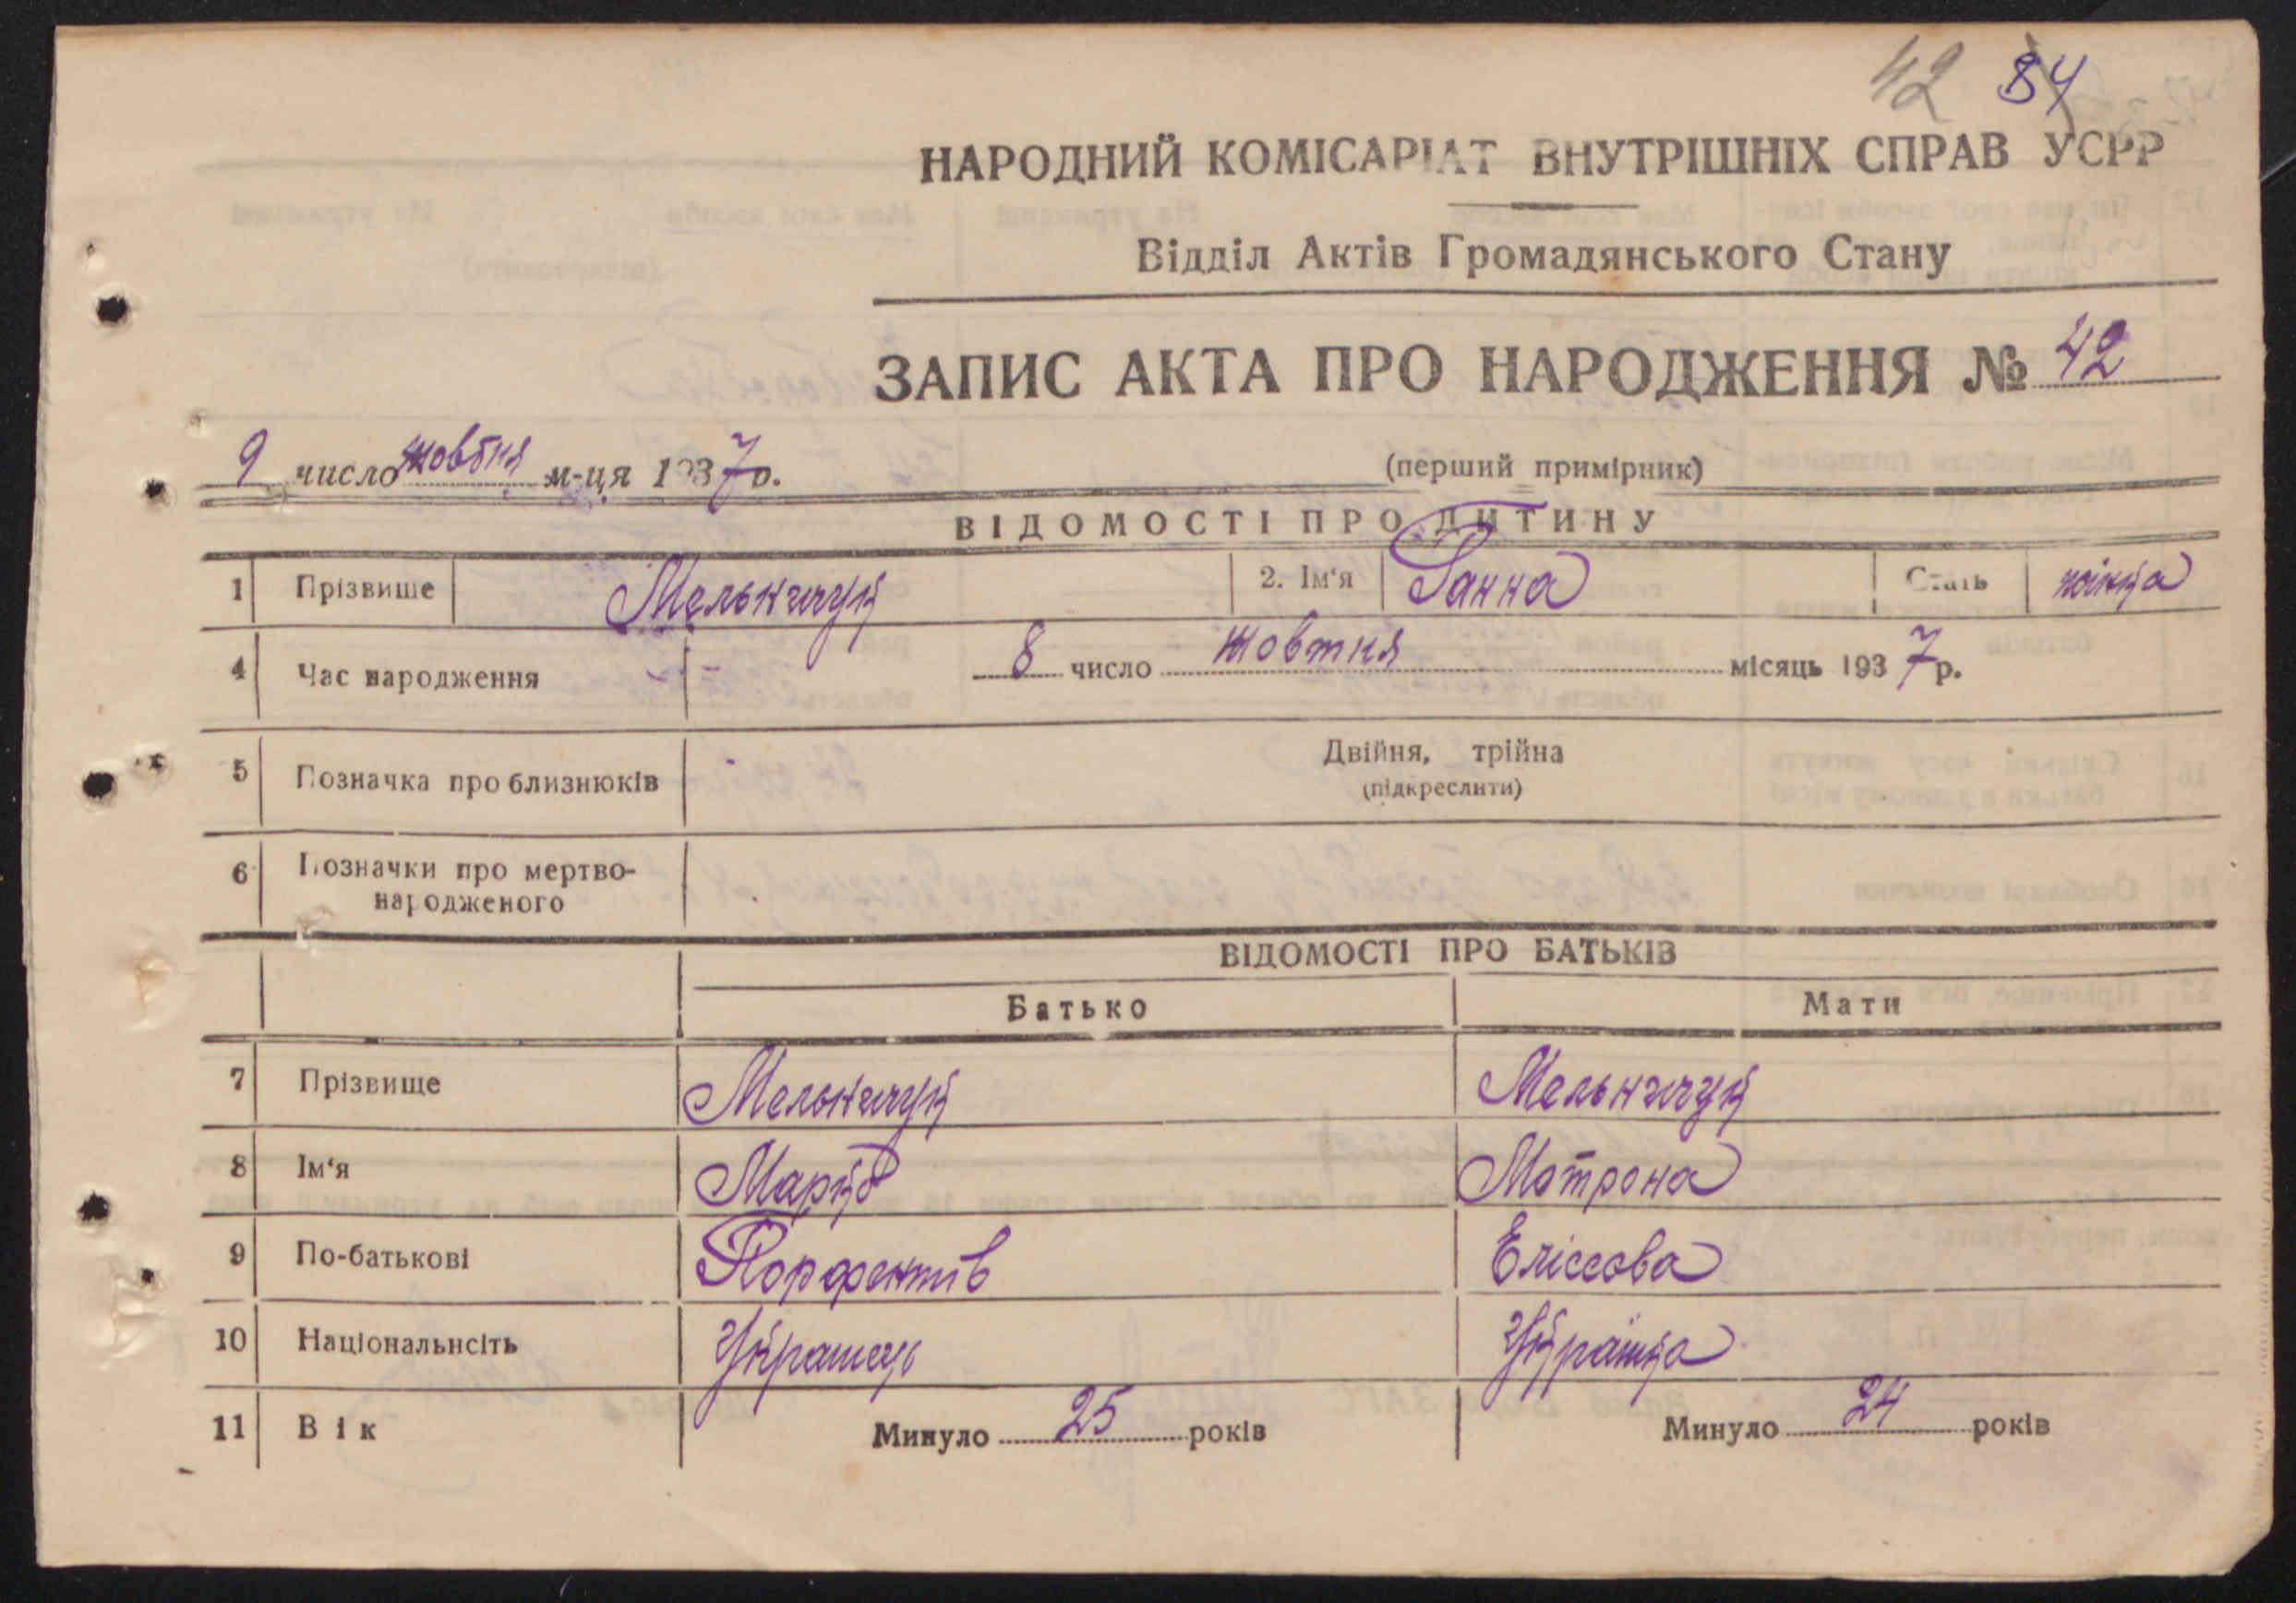 42 84
НАРОДНИЙ КОМІСАРІАТ ВНУТРІШНІХ СПРАВ УСРР
Відділ Актів Громадянського Стану
ЗАПИС АКТА ПРО НАРОДЖЕННЯ № 42
9 число жовтня м-ця 1937 р.
(перший примірник)
ВІДОМОСТІ ПРО ДИТИНУ
1 Прізвище Мельничук 2. Ім‘я Ганна Стать жінка
4 Час народження 8 число жовтня місяць 1937 р.
5 Позначка про близнюків Двійня, трійна
(підкреслити)
6 Позначки про мертво-
народженого
ВІДОМОСТІ ПРО БАТЬКІВ
Батько Мати
7 Прізвище Мельничук Мельничук
8 Ім‘я Марко Мотрона
9 По-батькові Еліссова
10 Національнсіть Українець Українка
11 Вік Минуло 25 років Минуло 24 років